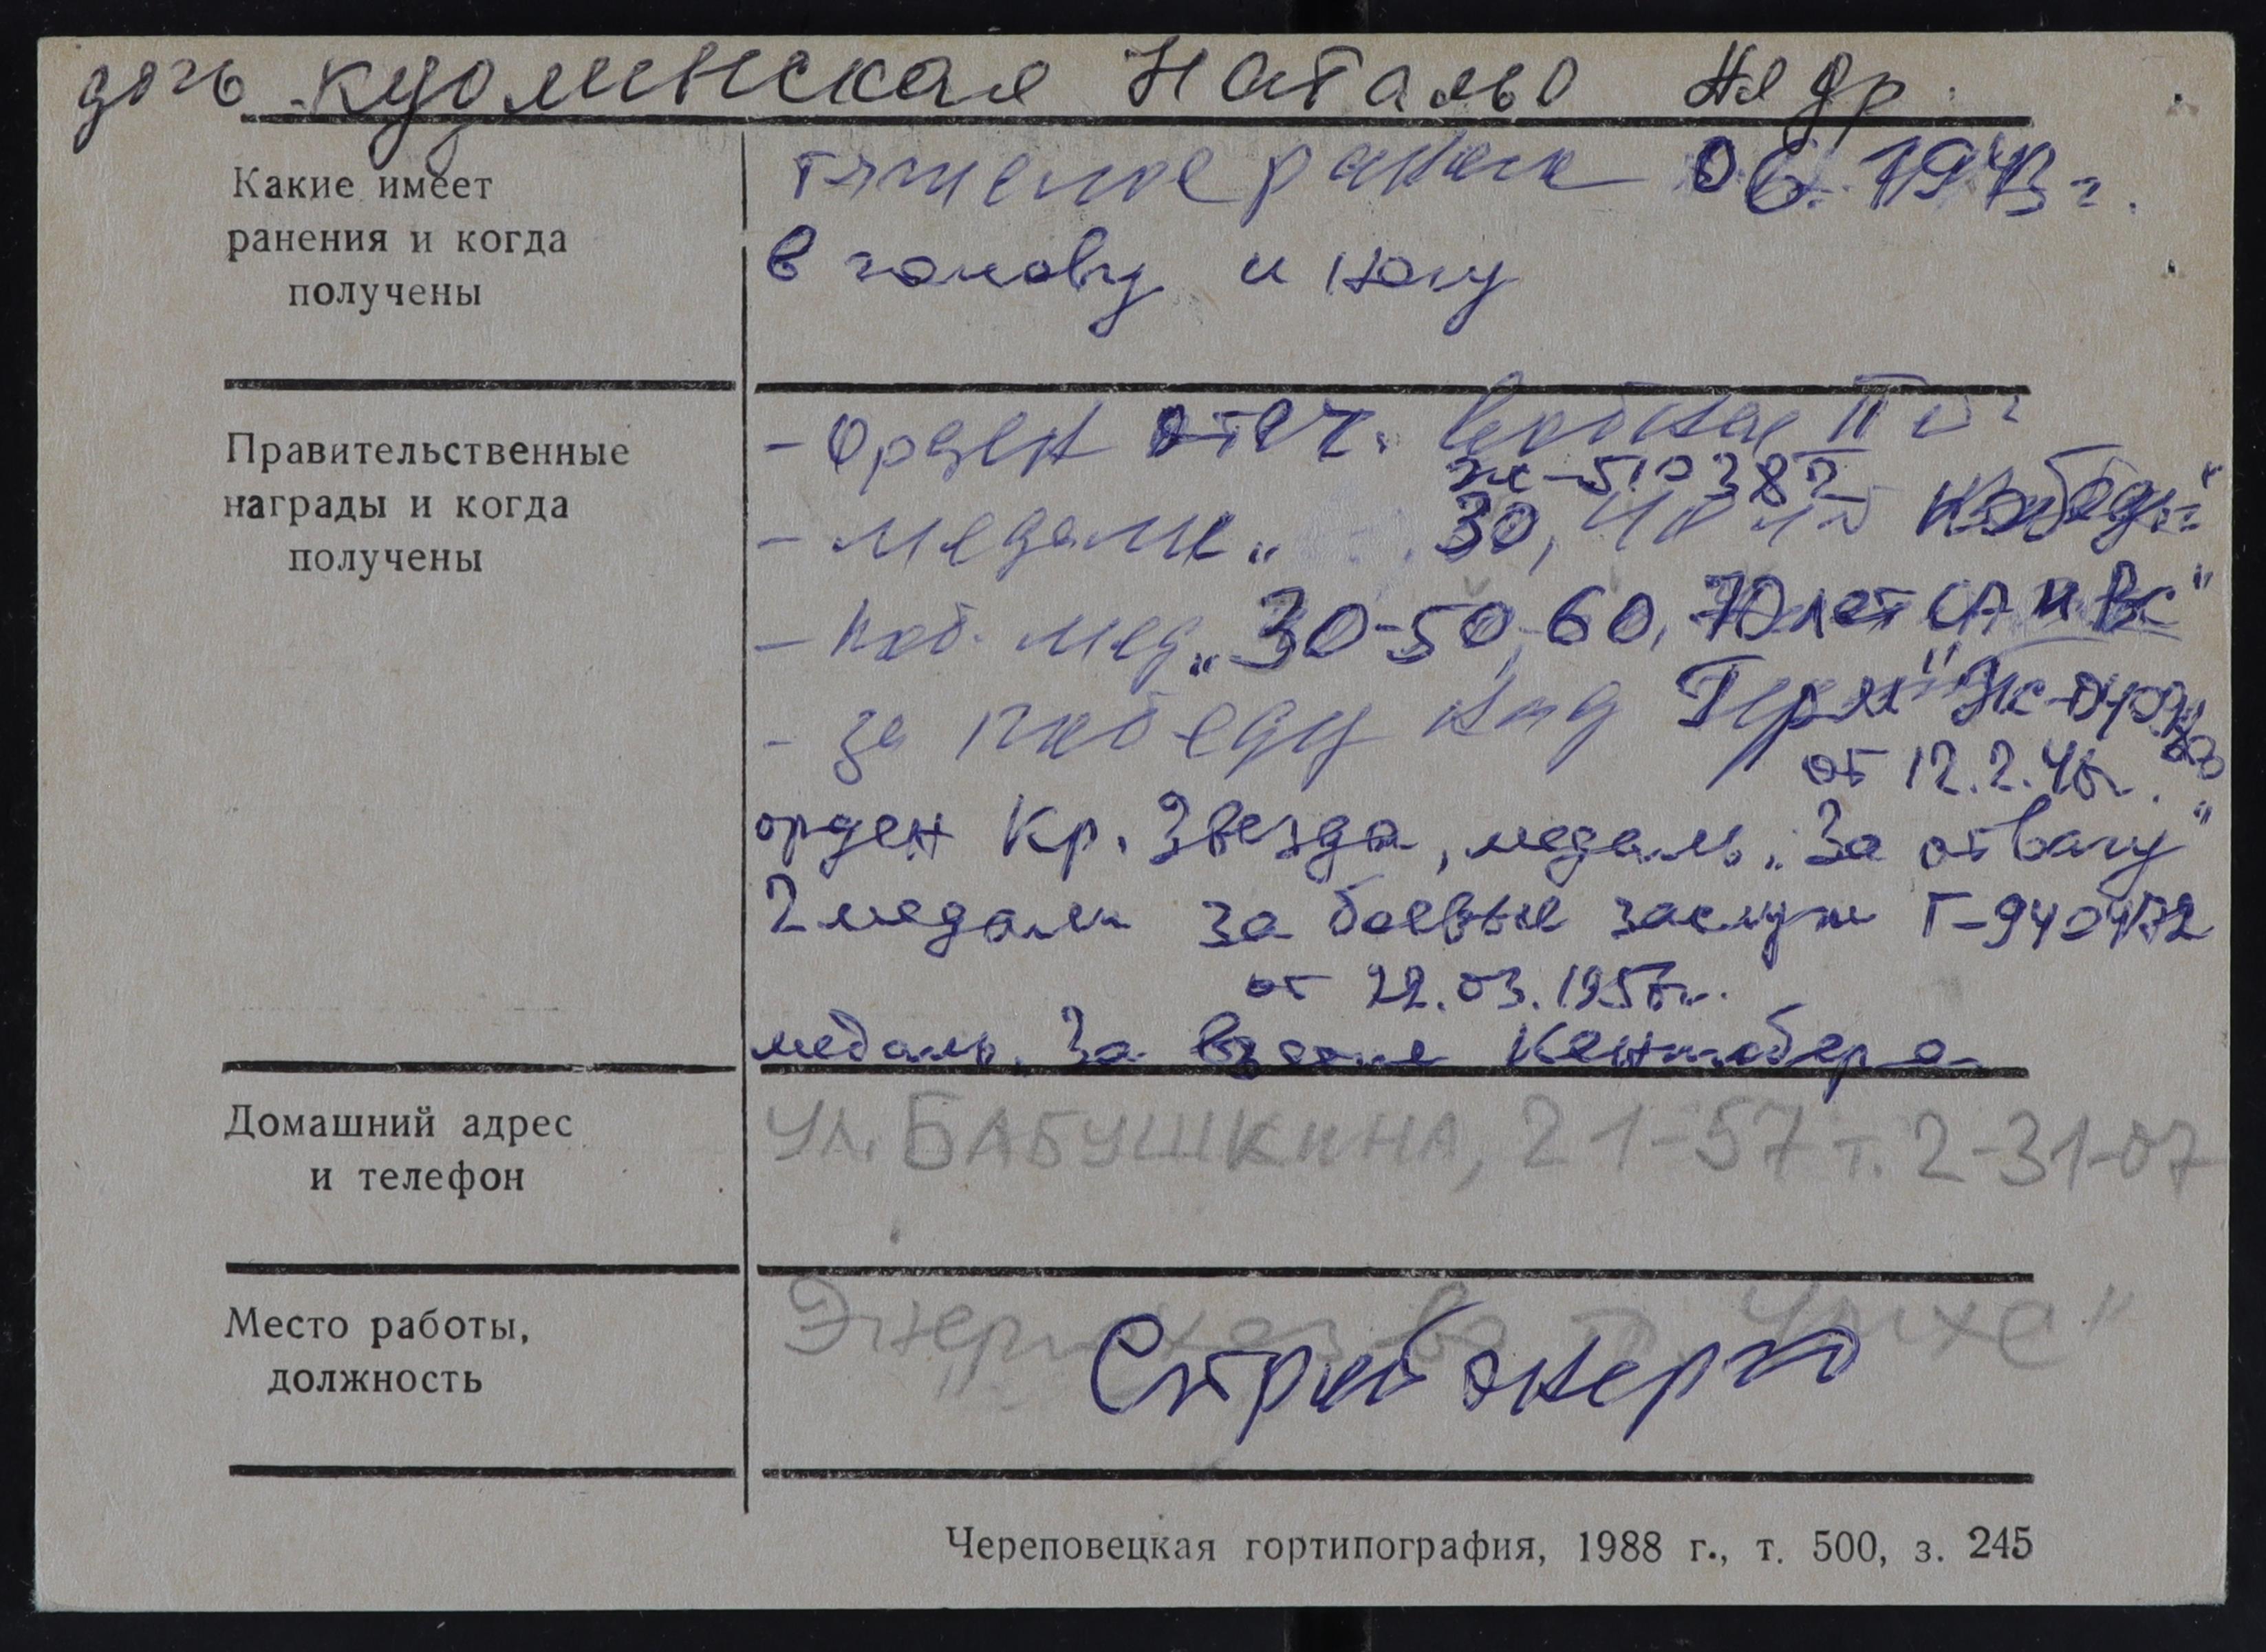 дочь Кудринская Наталья
Какие имеет
ранения и когда
получены
тяжелое ранен 06.1943 г.
в голову и ногу
Правительственные
награды и когда
получены
- Орден отеч. войны II
- медали „ 30, 40 Победы"
- юб. мед „30-50, 60, 70 лет СА и ВС"
- за победу над Герм"
от 12.2.46г.
орден Кр. Звезда, медаль „За отвагу"
2 медали за боевые заслуги Г-940472
от 22.03.1957г.
медаль. За взятие Кенигсберга
Домашний адрес
и телефон
ул. БАБУШКИНА, 21-57 т. 2-31-07
Место работы,
должность
Стройэнерго
Череповецкая гортипография, 1988 г., т. 500, з. 245